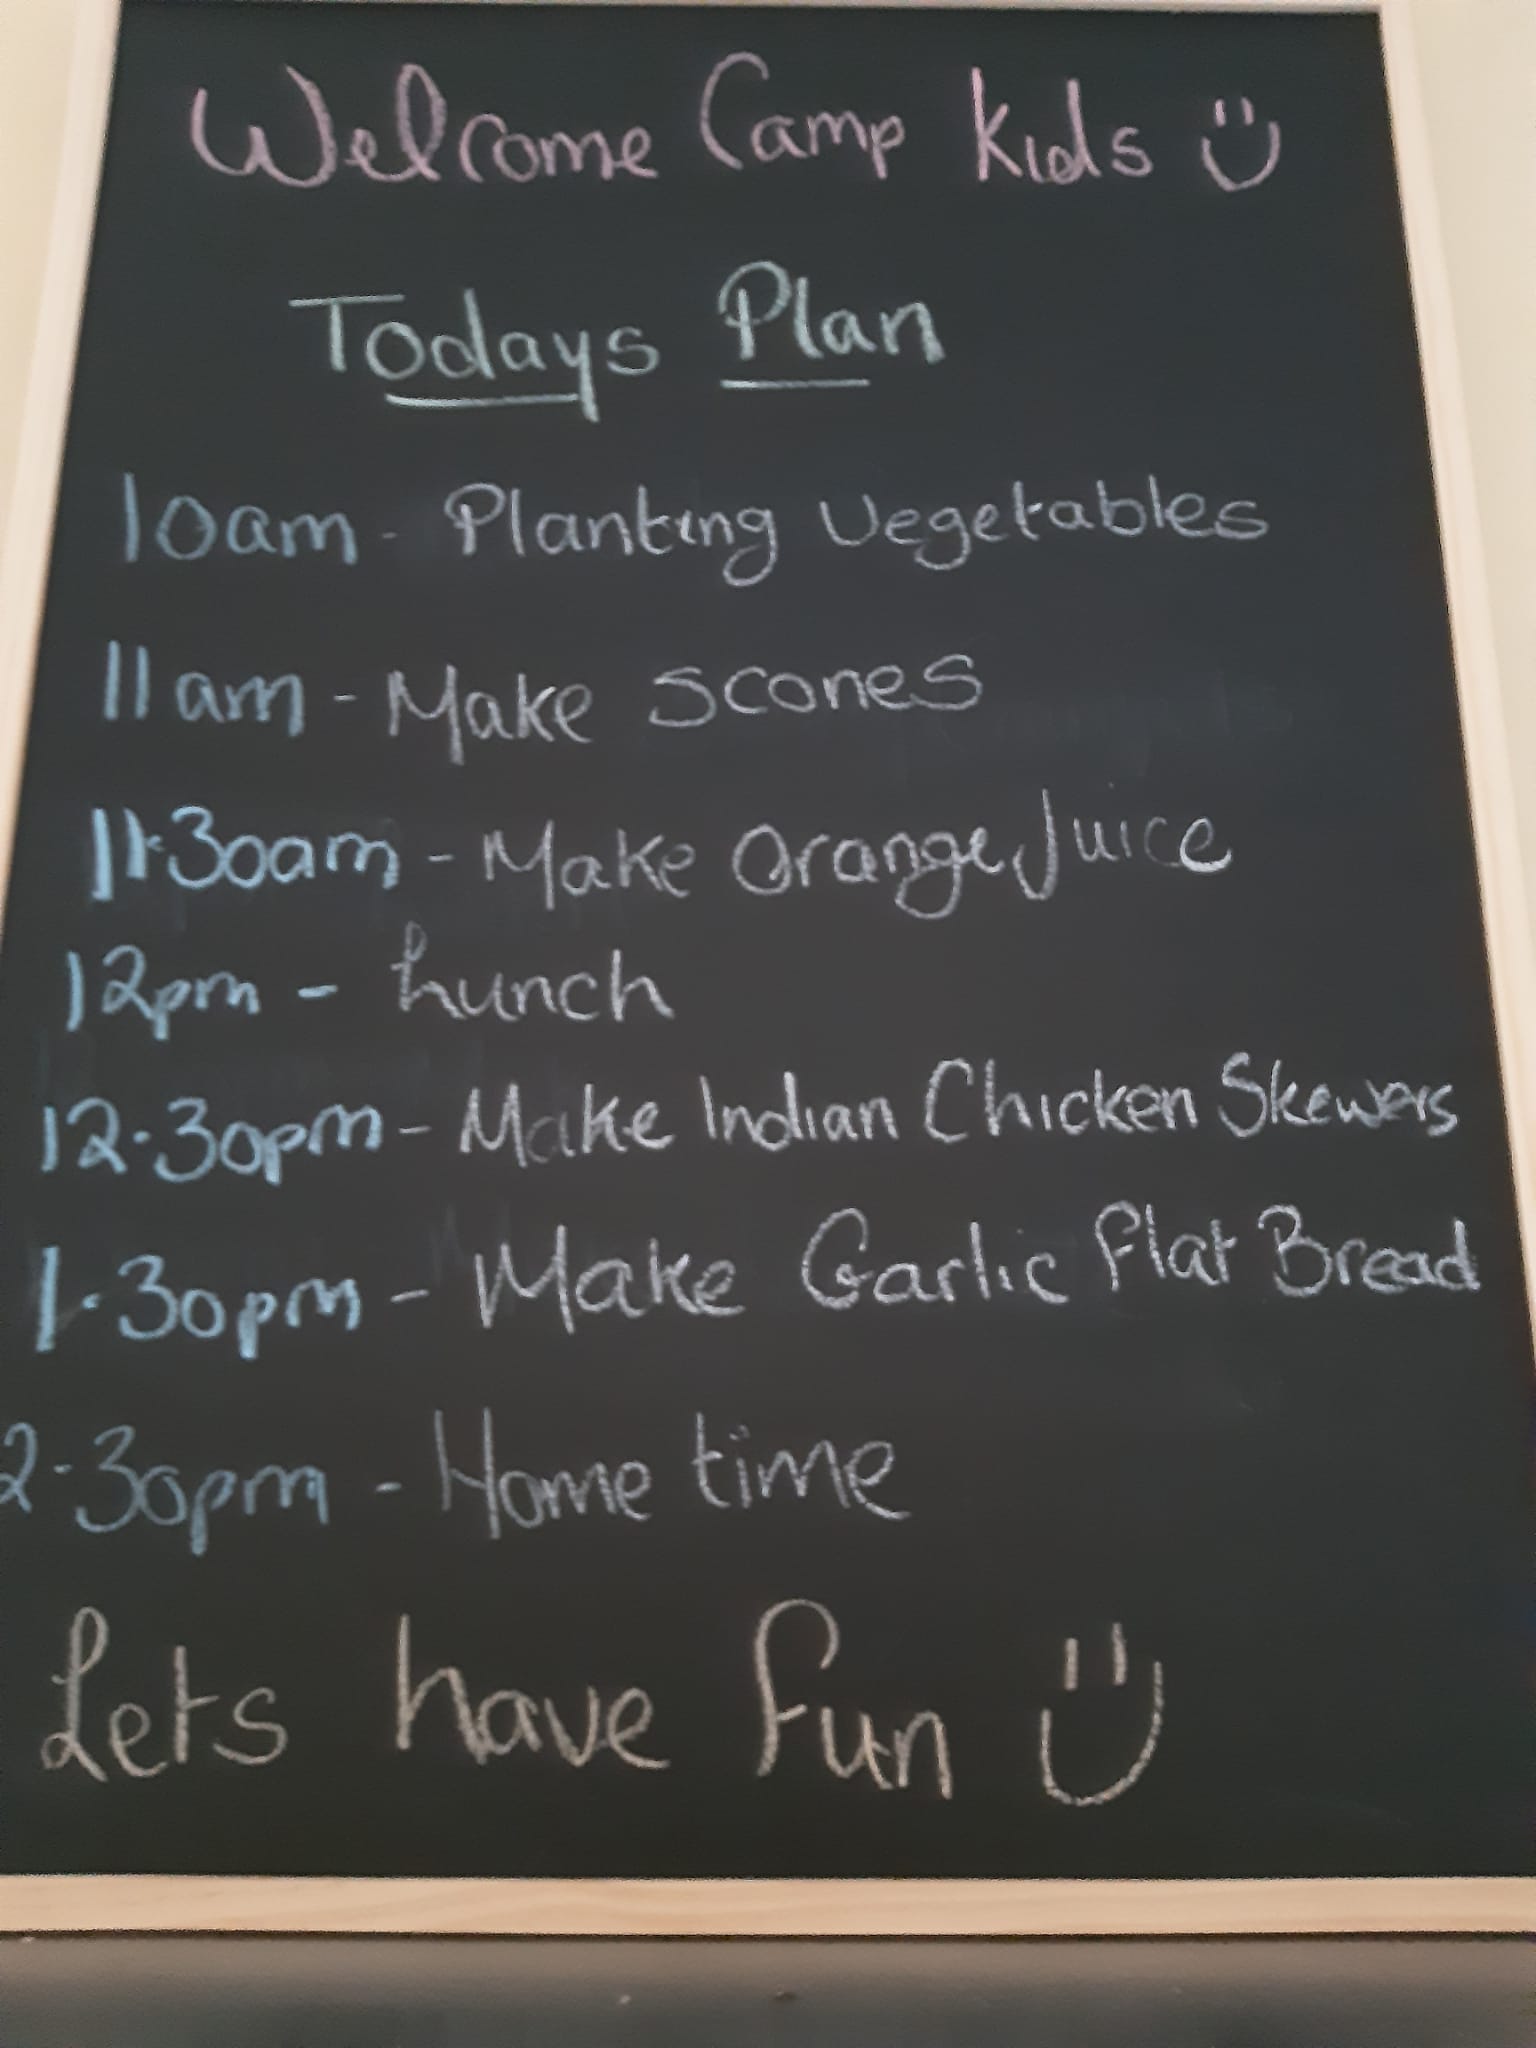 Welcome Camp Kids
Todays Plan
10am - Planting Vegetables
11am - Make scones
11.30am - Make Orange Juice
12pm - Lunch
12.30pm - Make Indian Chicken Skewers
1.30pm - Make Garlic Flat Bread
2.30pm - Home time
Lets have fun